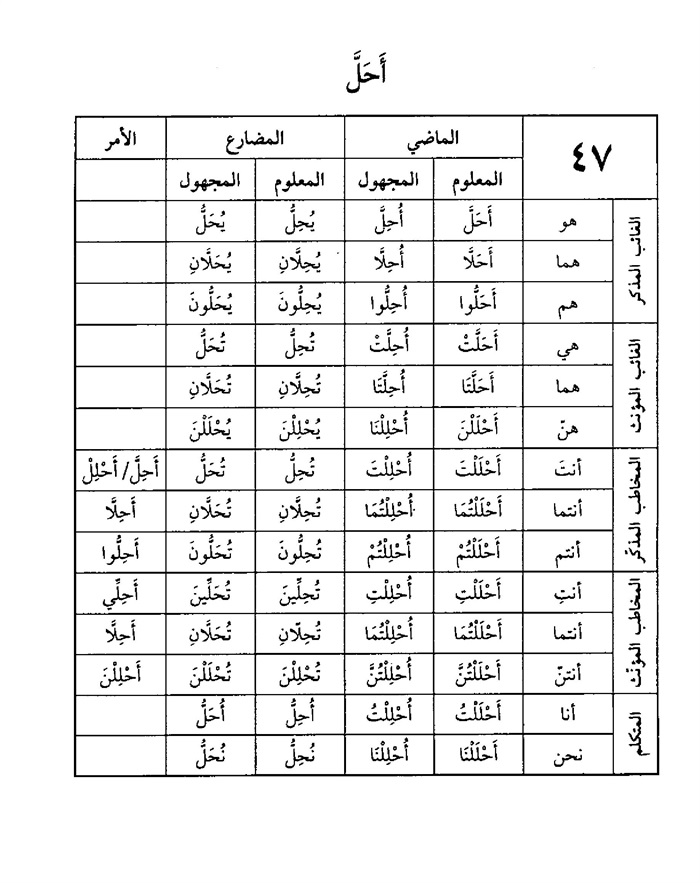 أَحَلَّ
٤٧ الماضي المضارع الأمر
المعلوم المجهول المعلوم المجهول
الغائب المذكر
هو أَحَلَّ أُحِلَّ يُحِلُّ يُحَلُّ
هما أَحَلَّا أُحِلَّا يُحِلَّانِ يُحَلَّانِ
هم أَحَلُّوا أُحِلُّوا يُحِلُّونَ يُحَلُّونَ
الغائب المؤنث
هي أَحَلَّتْ أُحِلَّتْ تُحِلُّ تُحَلُّ
هما أَحَلَّتَا أُحِلَّتَا تُحِلَّانِ تُحَلَّانِ
هنّ أَحْلَلْنَ أُحْلِلْنَا يُحْلِلْنَ يُحْلَلْنَ
المخاطب المذكّر
أنتَ أَحْلَلْتَ أُحْلِلْتَ تُحِلُّ تُحَلُّ أَحِلَّ/ أَحْلِلْ
أنتما أَحْلَلْتُمَا أُحْلِلْتُمَا تُحِلَّانِ تُحَلَّانِ أَحِلَّا
أنتم أَحْلَلْتُمْ أُحْلِلْتُمْ تُحِلُّونَ تُحَلُّونَ أَحِلُّوا
المخاطب المؤنّث
أنتِ أَحْلَلْتِ أُحْلِلْتِ تُحِلِّينَ تُحَلِّينَ أَحِلِّي
أنتما أَحْلَلْتُمَا أُحْلِلْتُمَا تُحِلّانِ تُحَلَّانِ أَحِلَّا
أنتنّ أَحْلَلْتُنَّ أُحْلِلْتُنَّ تُحْلِلْنَ تُحْلَلْنَ أَحْلِلْنَ
المتكلم
أنا أَحْلَلْتُ أُحْلِلْتُ أُحِلُّ أُحَلُّ
نحن أَحْلَلْنَا أُحْلِلْنَا نُحِلُّ نُحَلُّ